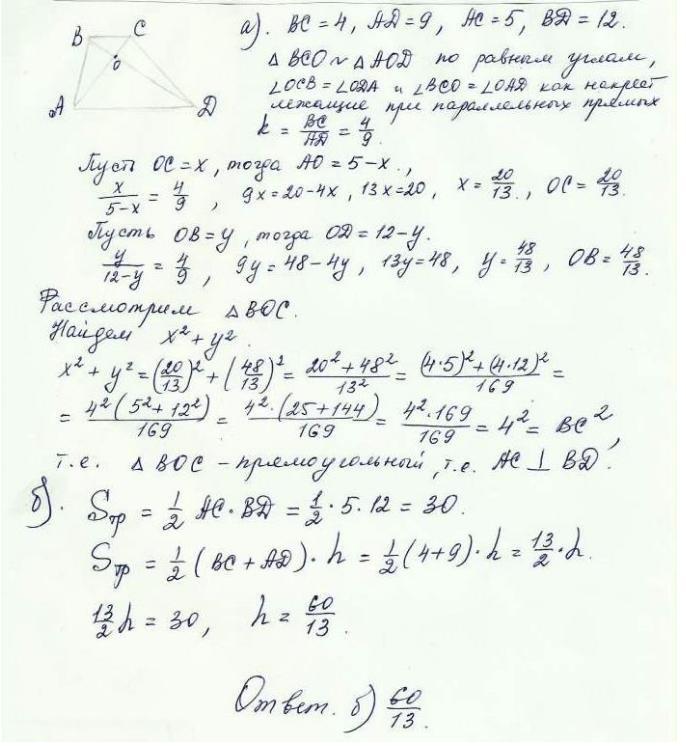 B C
O
A D
а). BC = 4, AD = 9, AC = 5, BD = 12.
△ BCO ~ △ AOD по равным углам,
∠OCB = ∠ODA и ∠BCO = ∠OAD как накрест
лежащие при параллельных прямых
k = BC/AD = 4/9.
Пусть OC = x, тогда AO = 5 - x.,
x/(5-x) = 4/9, 9x = 20 - 4x, 13x = 20, x = 20/13, OC = 20/13.
Пусть OB = y, тогда OD = 12 - y.
y/(12-y) = 4/9, 9y = 48 - 4y, 13y = 48, y = 48/13, OB = 48/13.
Рассмотрим △ BOC.
Найдем x² + y².
x² + y² = (20/13)² + (48/13)² = (20² + 48²)/13² = ((4·5)² + (4·12)²)/169 =
= 4²(5² + 12²)/169 = 4²·(25 + 144)/169 = 4²·169/169 = 4² = BC²,
т.е. △ BOC - прямоугольный, т.е. AC ⊥ BD.
б). Sтр = 1/2 AC·BD = 1/2·5·12 = 30.
Sтр = 1/2 (BC + AD)·h = 1/2 (4 + 9)·h = 13/2·h.
13/2 h = 30, h = 60/13.
Ответ. б) 60/13.